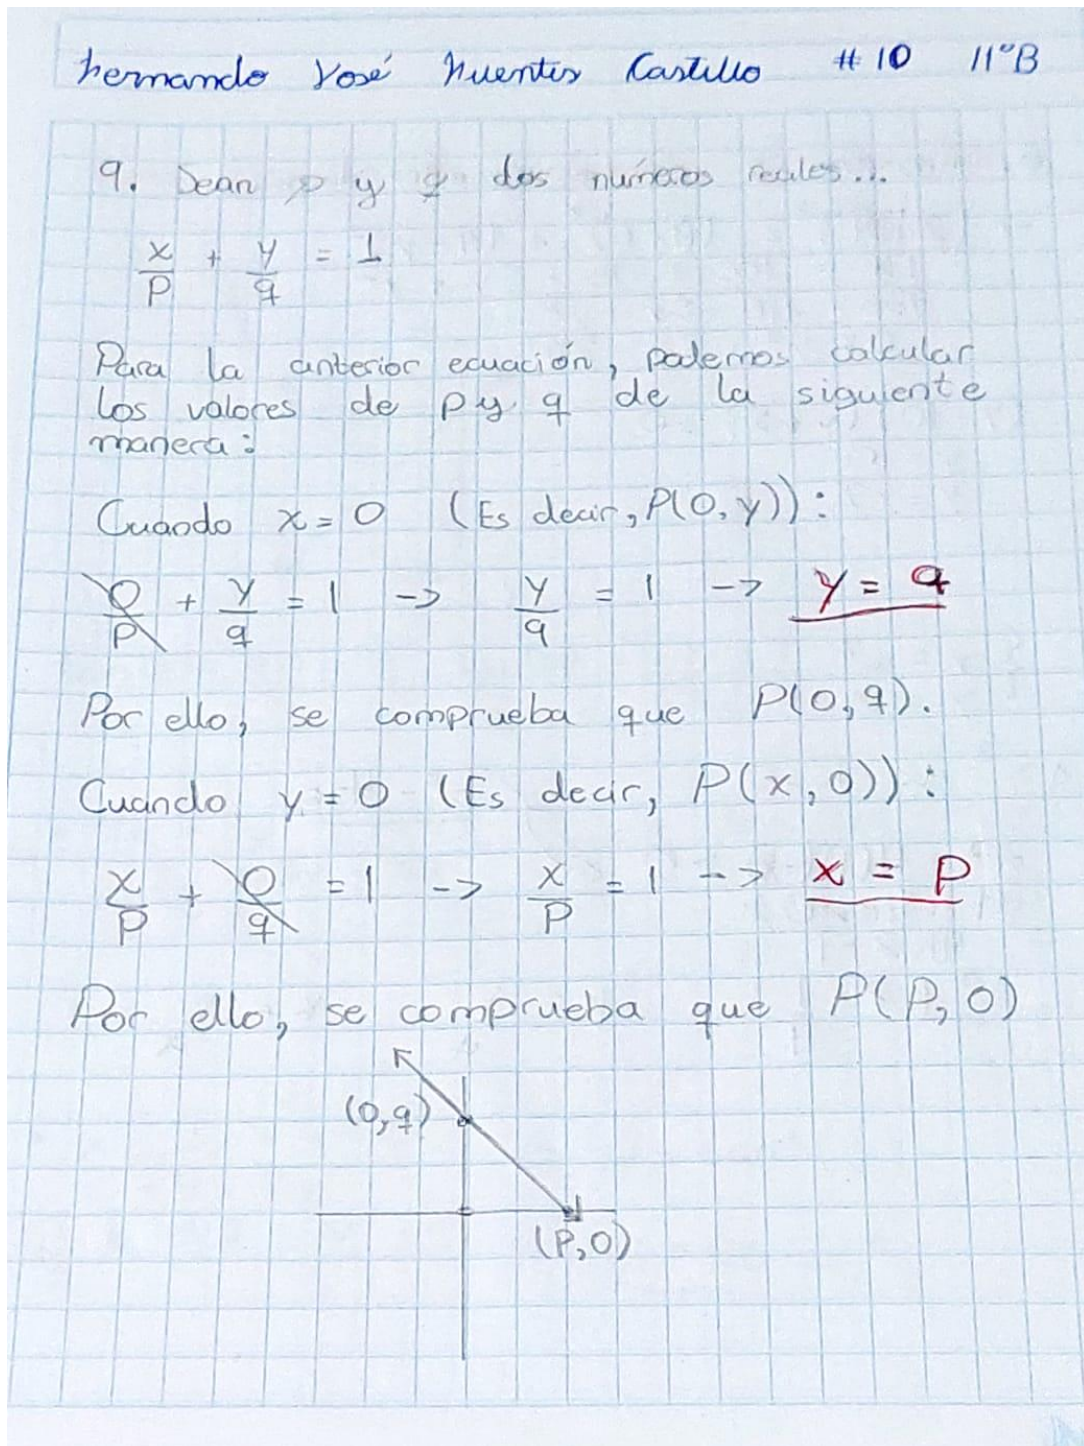 Hernando José Fuentes Castillo # 10 11°B
9. Sean p y q dos números reales...
x/p + y/q = 1
Para la anterior ecuación, podemos calcular
los valores de p y q de la siguiente
manera:
Cuando x = 0 (Es decir, P(0, y)):
0/p + y/q = 1 -> y/q = 1 -> y = q
Por ello, se comprueba que P(0, q).
Cuando y = 0 (Es decir, P(x, 0)):
x/p + 0/q = 1 -> x/p = 1 -> x = p
Por ello, se comprueba que P(P, 0)
(0, q)
(P, 0)